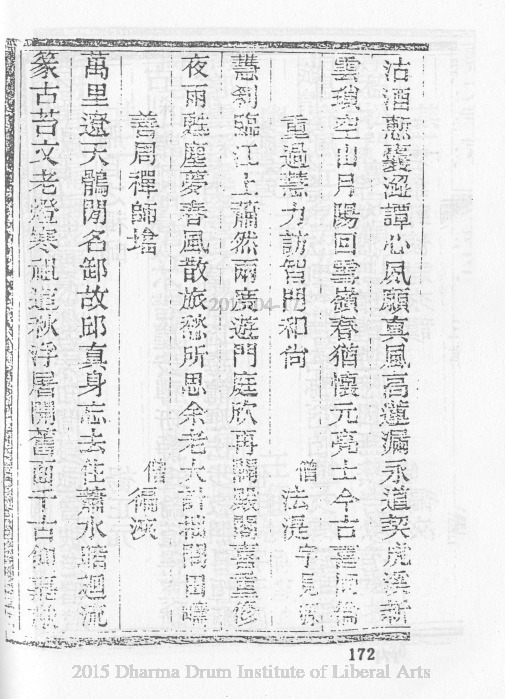 沽酒慙囊澀譚心夙願真風高蓮漏永道契虎溪新
雲瑣空山月陽回雲嶺春猶懷元亮士今古喜同
重過慧力訪智門和尚
僧法湜字見
慧剎臨江上蕭然兩度遊門庭欣再闢殿閣喜重修
夜雨甦塵夢春風散旅愁所思余老大計
善周禪師塔
僧
萬里遼天鶴閒名卸故邱真身忘去住蕭水暗迴流
篆古苔文老燈寒祖道秋浮屠開舊面千古
172
2015 Dharma Drum Institute of Liberal Arts